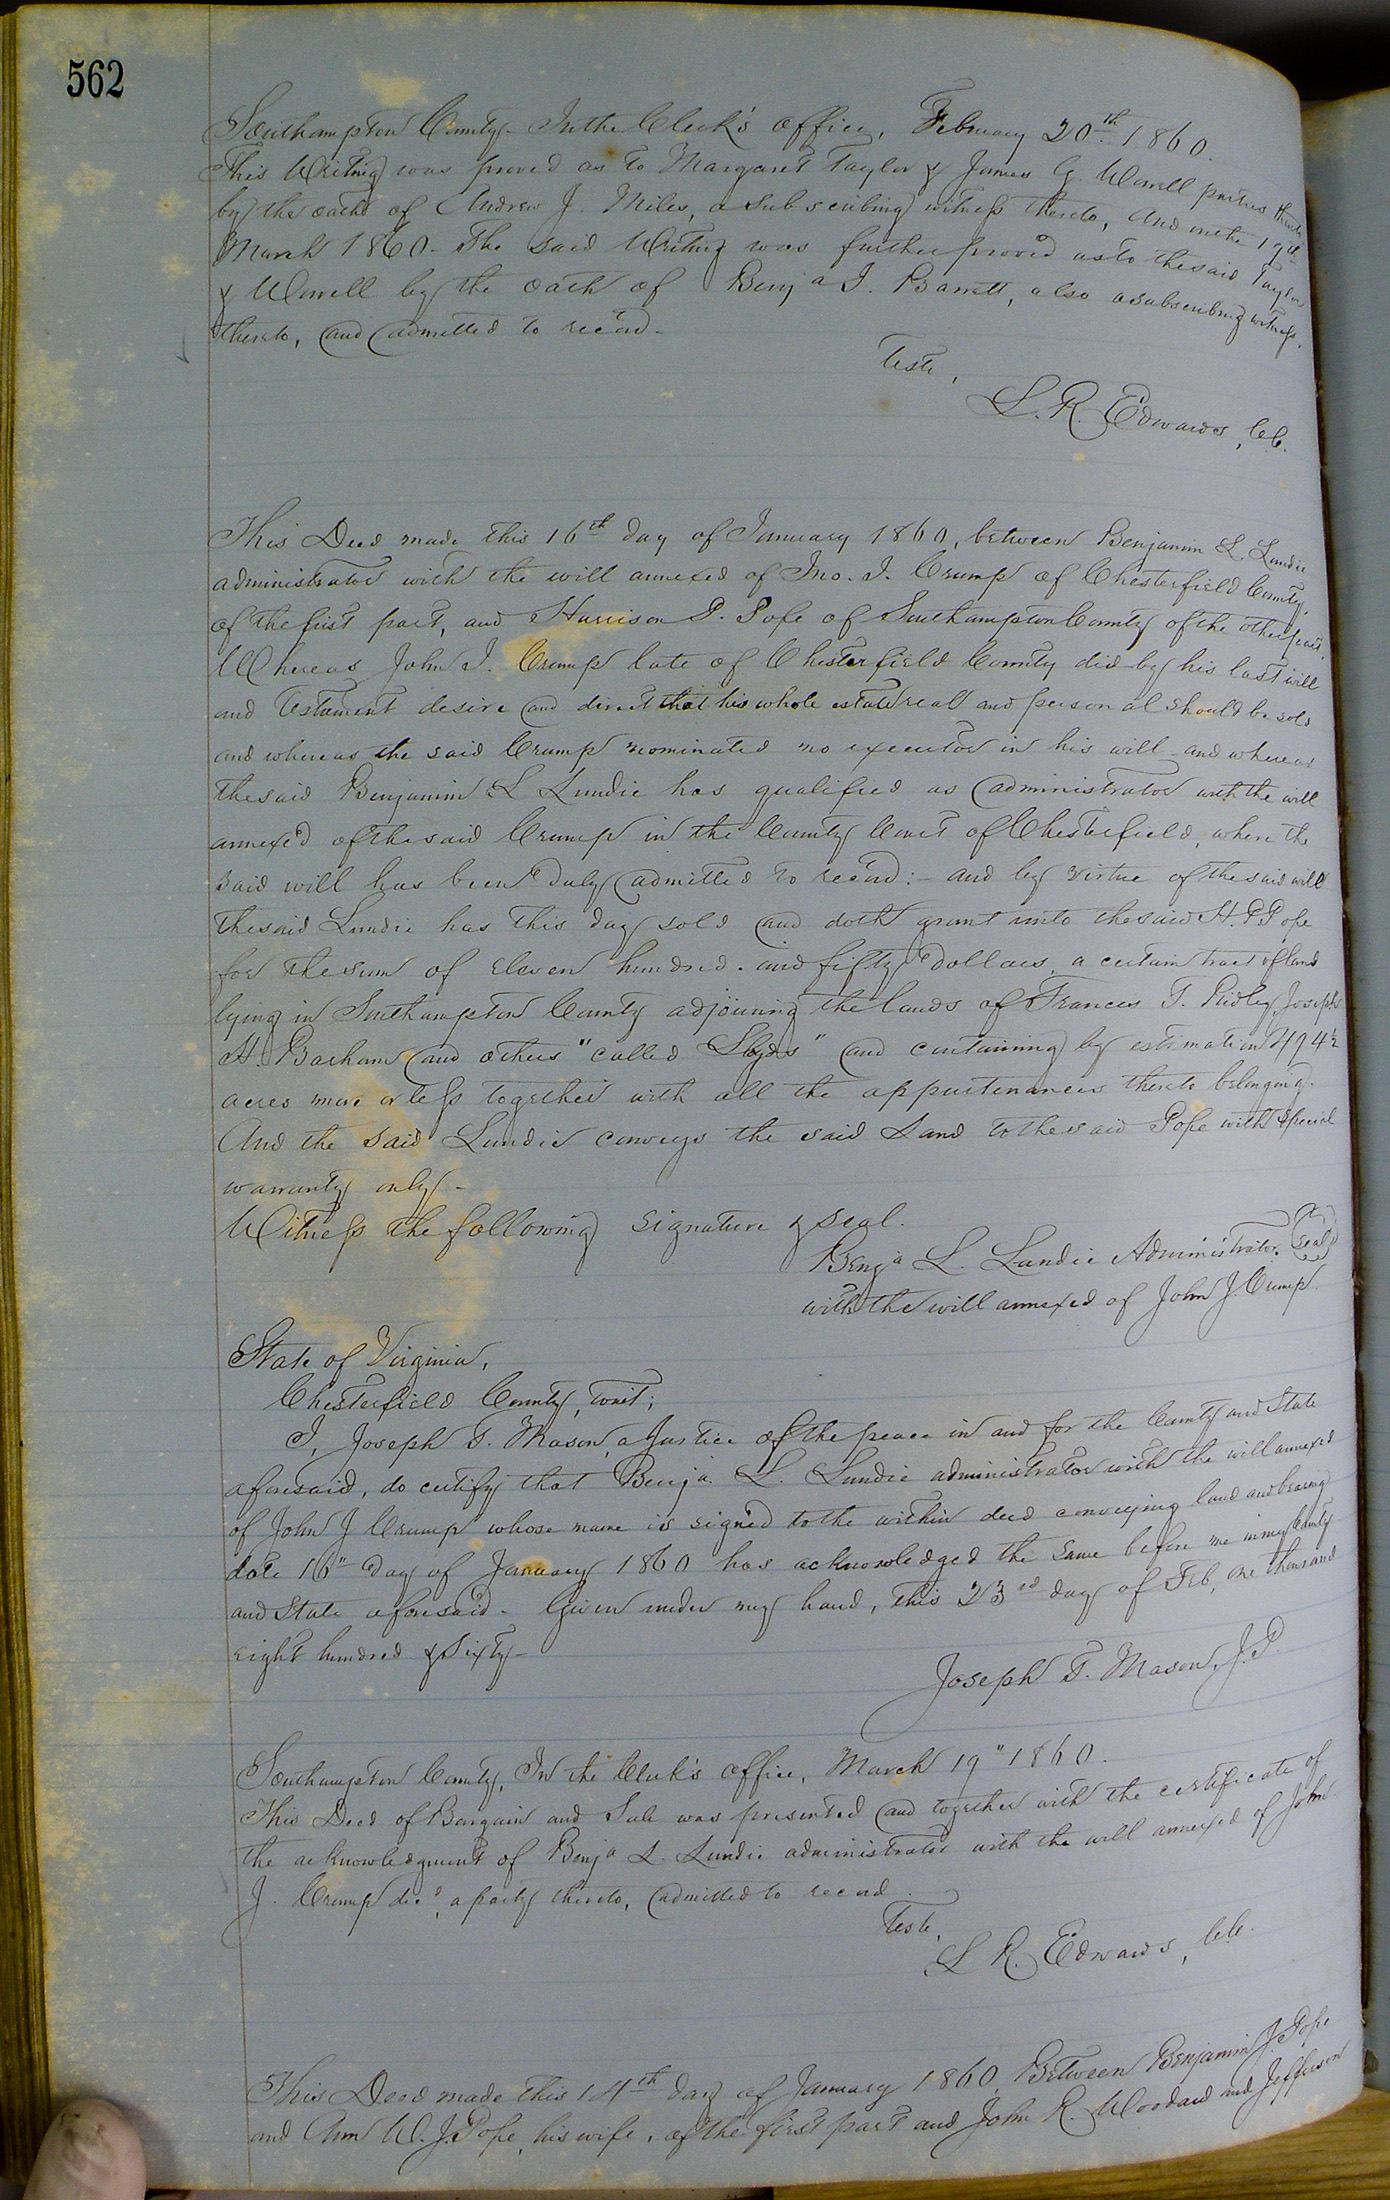 562
Southampton County - In the Clerk's office, February 20th 1860.
This Writing was proved as to Margaret Taylor & James G. Worrell parties thereto
by the oath of Andrew J. Miles, a subscribing witness thereto, And on the 19th
March 1860. The said Writing was further proved as to the said Taylor
& Worrell by the oath of Benja I. Barrett, also a subscribing witness
thereto, and admitted to record -
Teste,
L. R. Edwards, C.C.
This Deed made this 16th day of January 1860, between Benjamin L. Lundie
administrator with the will annexed of Jno. J. Crump of Chesterfield County,
of the first part, and Harrison P. Pope of Southampton County of the other part.
Whereas John J. Crump late of Chesterfield County did by his last will
and Testament desire and direct that his whole estate real and personal should be sold
and whereas the said Crump nominated no executor in his will - and whereas
the said Benjamin L Lundie has qualified as administrator with the will
annex'd of the said Crump in the County Court of Chesterfield, where the
said will has been duly admitted to record: - and by virtue of the said will
the said Lundie has this day sold and doth grant unto the said H. P. Pope
for the sum of eleven hundred and fifty Dollars, a certain tract of land
lying in Southampton County adjoining the lands of Frances T. Ridley, Joseph
H. Barham and others "called" and containing by estimation 494½
acres more or less together with all the appurtenances thereto belonging.
And the said Lundie conveys the said Land to the said Pope with special
warranty only -
Witness the following signature & seal.
Benja L. Lundie Administrator Seal
with the will annexed of John J. Crump.
State of Virginia,
Chesterfield County, towit;
I, Joseph T. Mason, a Justice of the peace in and for the County and State
aforesaid, do certify that Benja. L. Lundie administrator with the will annexed
of John J Crump whose name is signed to the within deed conveying land and bearing
date 16" day of January 1860 has acknowledged the same before me in my County
and State aforesaid - Given under my hand, this 23rd day of Feb, one thousand
eight hundred & Sixty -
Joseph T. Mason, J.P.
Southampton County, In the Clerk's office, March 19" 1860.
This Deed of Bargain and Sale was presented and together with the certificate of
the acknowledgment of Benja L. Lundie administrator with the will annexed of John
J. Crump decd, a party thereto, admitted to record.
Teste,
L R. Edwards, C.C.
This Deed made this 14th day of January 1860, Between Benjamin J. Pope
and Ann W. J. Pope, his wife, of the first part and John R. Woodard and Jefferson